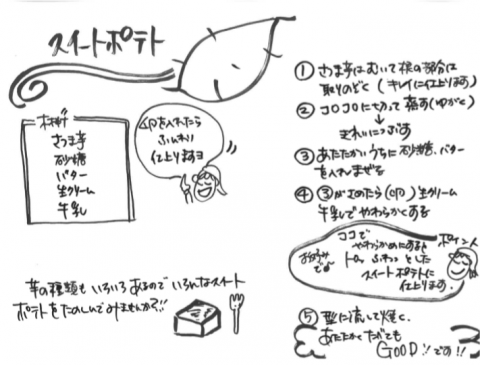 スイートポテト
材料
さつま芋
砂糖
バター
生クリーム
牛乳
卵を入れたら
ふんわり
仕上りますヨ
芋の種類もいろいろあるので いろんなスイート
ポテトをたのしんでみませんか?!!
① さつま芋はむいて根の部分は
取りのぞく (キレイに仕上ります)
② コロコロに切って 蒸す(ゆがく)
↓
きれいにつぶす
③ あたたかいうちに 砂糖、バター
を入れまぜる
④ ③がさめたら (卵) 生クリーム
牛乳でやわらかくする
ポイント
お好みで
ココで
やわらかめにすると
ふわっとした
スイートポテトに
仕上ります。
⑤ 型に流して焼く、
あたたかくたべても
GOOD!です!!